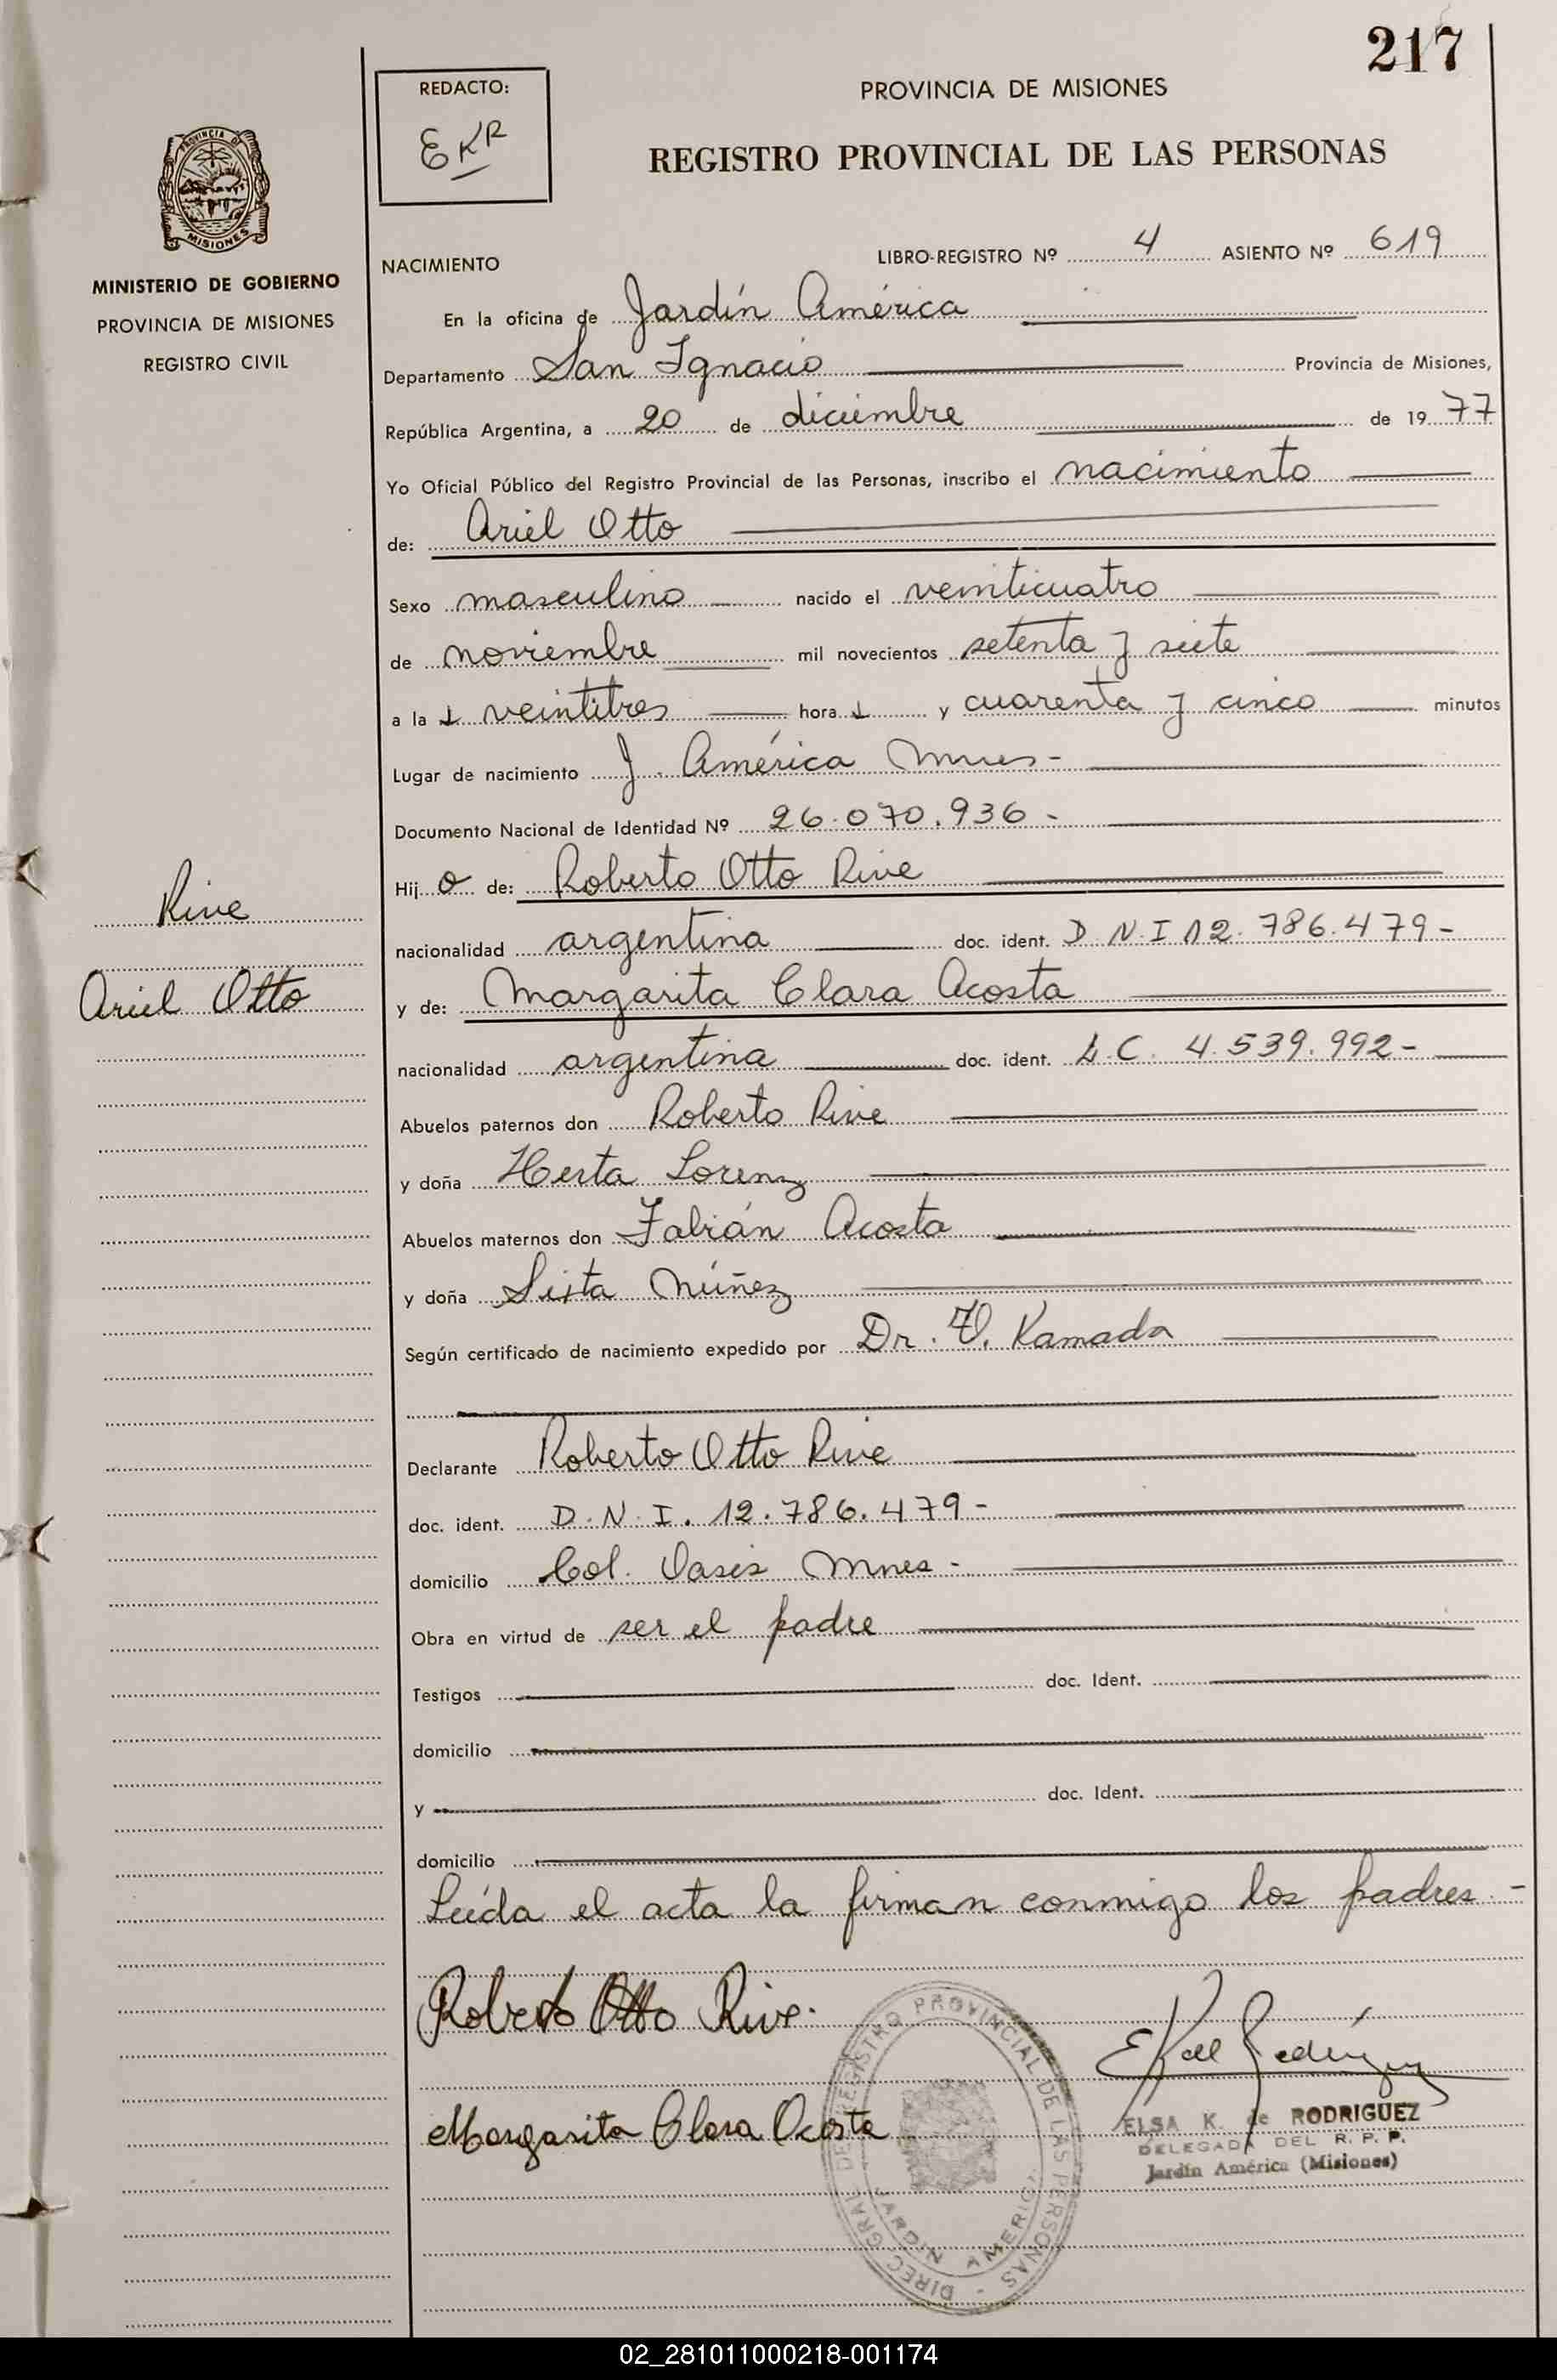 217
REDACTO:
EKR
PROVINCIA DE MISIONES
REGISTRO PROVINCIAL DE LAS PERSONAS
PROVINCIA DE
MISIONES
MINISTERIO DE GOBIERNO
PROVINCIA DE MISIONES
REGISTRO CIVIL
NACIMIENTO LIBRO-REGISTRO Nº 4 ASIENTO Nº 619
En la oficina de Jardín América
Departamento San Ignacio Provincia de Misiones,
República Argentina, a 20 de diciembre de 1977
Yo Oficial Público del Registro Provincial de las Personas, inscribo el nacimiento
de: Ariel Otto
Sexo masculino nacido el veinticuatro
de noviembre mil novecientos setenta y siete
a las veintitres horas y cuarenta y cinco minutos
Lugar de nacimiento J. América Mnes-
Documento Nacional de Identidad Nº 26.070.936-
Hijo de: Roberto Otto Rive
Rive
nacionalidad argentina doc. ident. D.N.I 12.786.479-
Ariel Otto
y de: Margarita Clara Acosta
nacionalidad argentina doc. ident. L.C. 4.539.992-
Abuelos paternos don Roberto Rive
y doña Herta Lorenz
Abuelos maternos don Fabián Acosta
y doña Sixta Núñez
Según certificado de nacimiento expedido por Dr. Kamada
Declarante Roberto Otto Rive
doc. ident. D.N.I. 12.786.479-
domicilio Col. Oasis Mnes-
Obra en virtud de ser el padre
Testigos doc. Ident.
domicilio
y doc. Ident.
domicilio
Leída el acta la firman conmigo los padres.-
Roberto Otto Rive.
Margarita Clara Acosta
DIREC. GRAL. DE REGISTRO PROVINCIAL DE LAS PERSONAS -
JARDIN AMERICA
EK de Rodríguez
ELSA K. de RODRIGUEZ
DELEGADA DEL R. P. P.
Jardín América (Misiones)
02_281011000218-001174